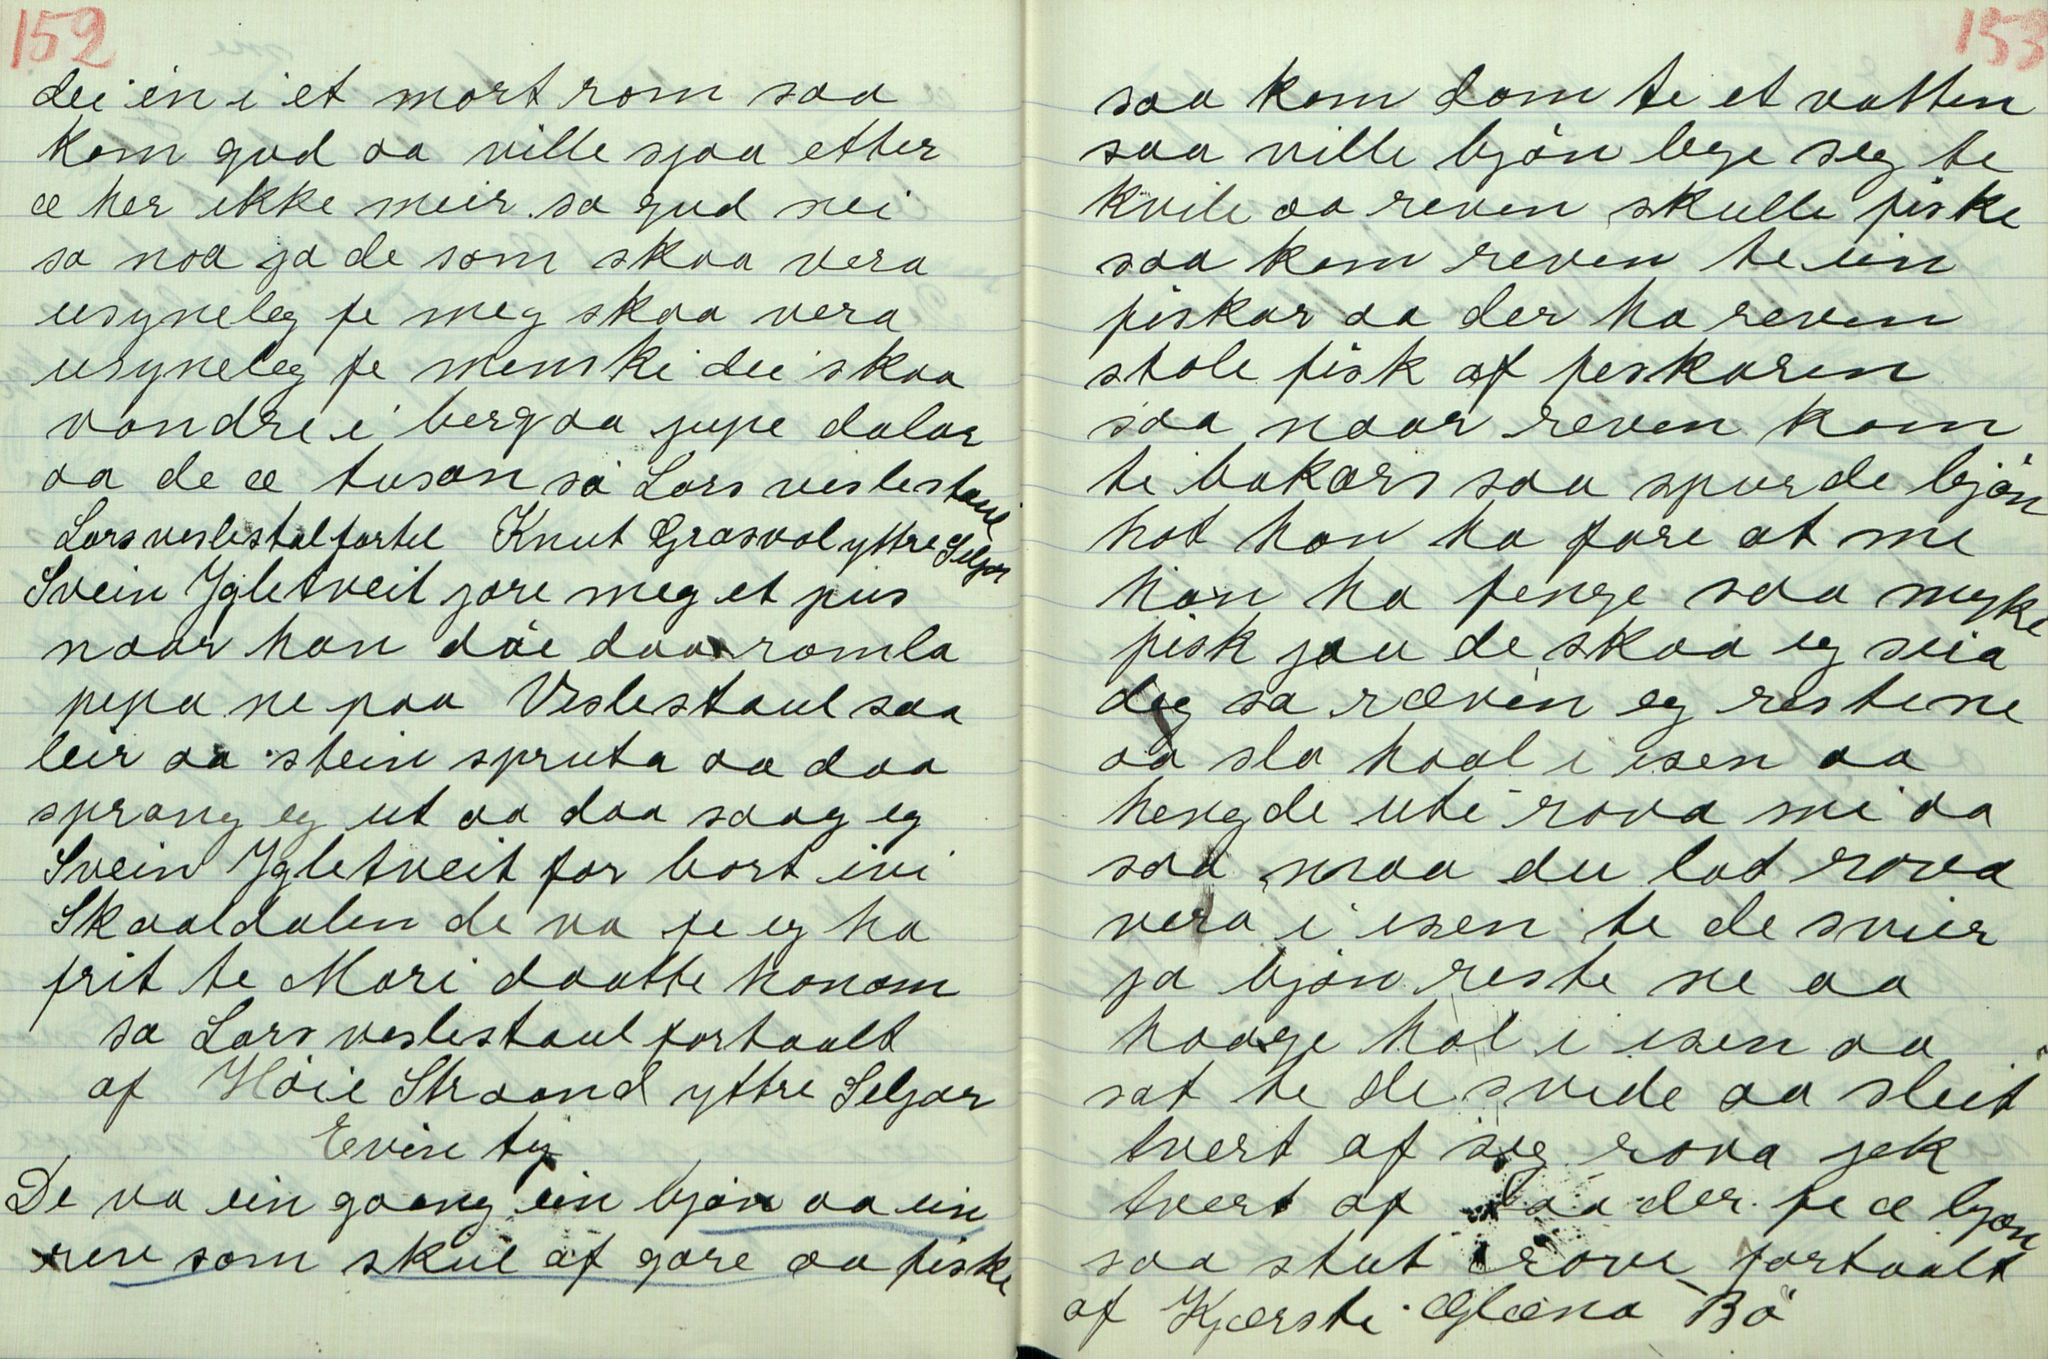 152
dei in i et mort rom saa
kom gud aa ville sjaa etter
æ her ikke meir sa gud nei
sa noa ja de som skaa vera
usyneleg fe meg skaa vera
usyneleg fe menski dei skaa
vandre i berg aa jupe dalar
aa de æ tusan sa Lars veslestaul
Lars veslestal fortel Knut Grasvol yttre Seljor
Svein Ygletveit jore meg et pus
naar han döe daa ramla
pepa ne paa Veslestaul saa
leir aa stein spruta aa daa
sprang eg ut aa daa saag eg
Svein Ygletveit for bort ivi
Skaaldalen de va fe eg ha
frit te Mari daatte honom
sa Lars veslestaul fortaalt
af Höie Straand yttre Seljor
Evin ty
De va ein gaang ein bjön aa ein
rev som skul af gare aa fiske
153
saa kom dom te et vatten
saa ville bjön lege seg te
kvile aa reven skulle fiske
saa kom reven te ein
fiskar aa der ha reven
stole fisk af feskaren
saa naar reven kom
te bakars saa spurde bjön
hot han ha fare at me
han ha fenge saa myke
fisk jau de skaa eg seia
deg sa ræven eg restene
aa sla haal i isen aa
hengde uti rova mi aa
saa maa du lat rova
vera i isen te de svier
ja bjön reste ne aa
haage hol i isen aa
sat te de svide aa sleit
tvert af seg rova jek
tvert af saa der fe æ bjön
saa stut i rove fortaalt
af Kjærste Æglæna Bö